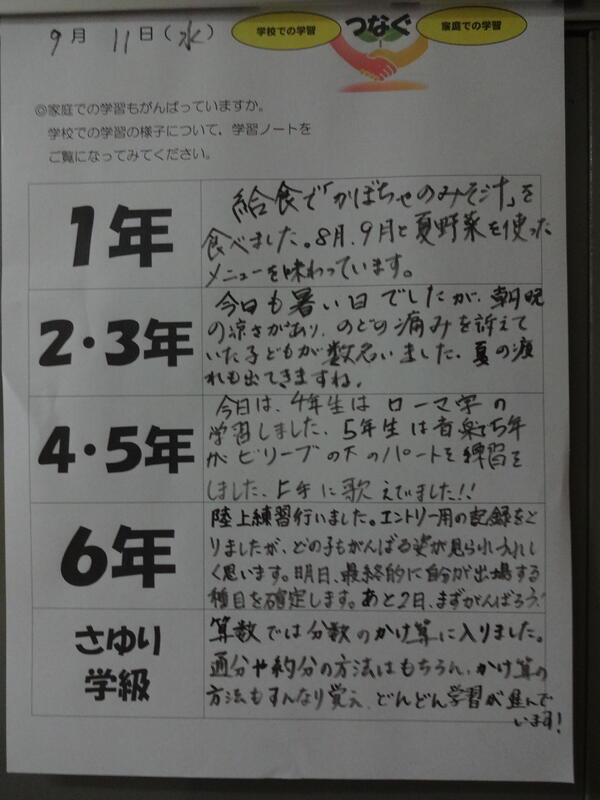 9月 11日(水)
学校での学習
つなぐ
家庭での学習
◎家庭での学習もがんばっていますか。
学校での学習の様子について、学習ノートを
ご覧になってみてください。
1年
給食で「かぼちゃのみそ汁」を
食べました。8月、9月と夏野菜を使った
メニューを味わっています。
2・3年
今日も暑い日でしたが、朝晩
の涼さがあり、のどの痛みを訴えて
いた子どもが数名いました。夏の疲
れも出てきますね。
4・5年
今日は、4年生は ローマ字の
学習しました、5年生は音楽で5年
がビリーブの下のパートを練習を
しました、上手に歌えてました!!
6年
陸上練習行いました。エントリー用の記録をと
りましたが、どの子もがんばる姿が見られうれし
く思います。明日、最終的に自分が出場する
種目を確定します。あと2日、まずがんばろう!
さゆり
学級
算数では分数のかけ算に入りました。
通分や約分の方法はもちろん、かけ算の
方法もすんなり覚え、どんどん学習が進んで
います!